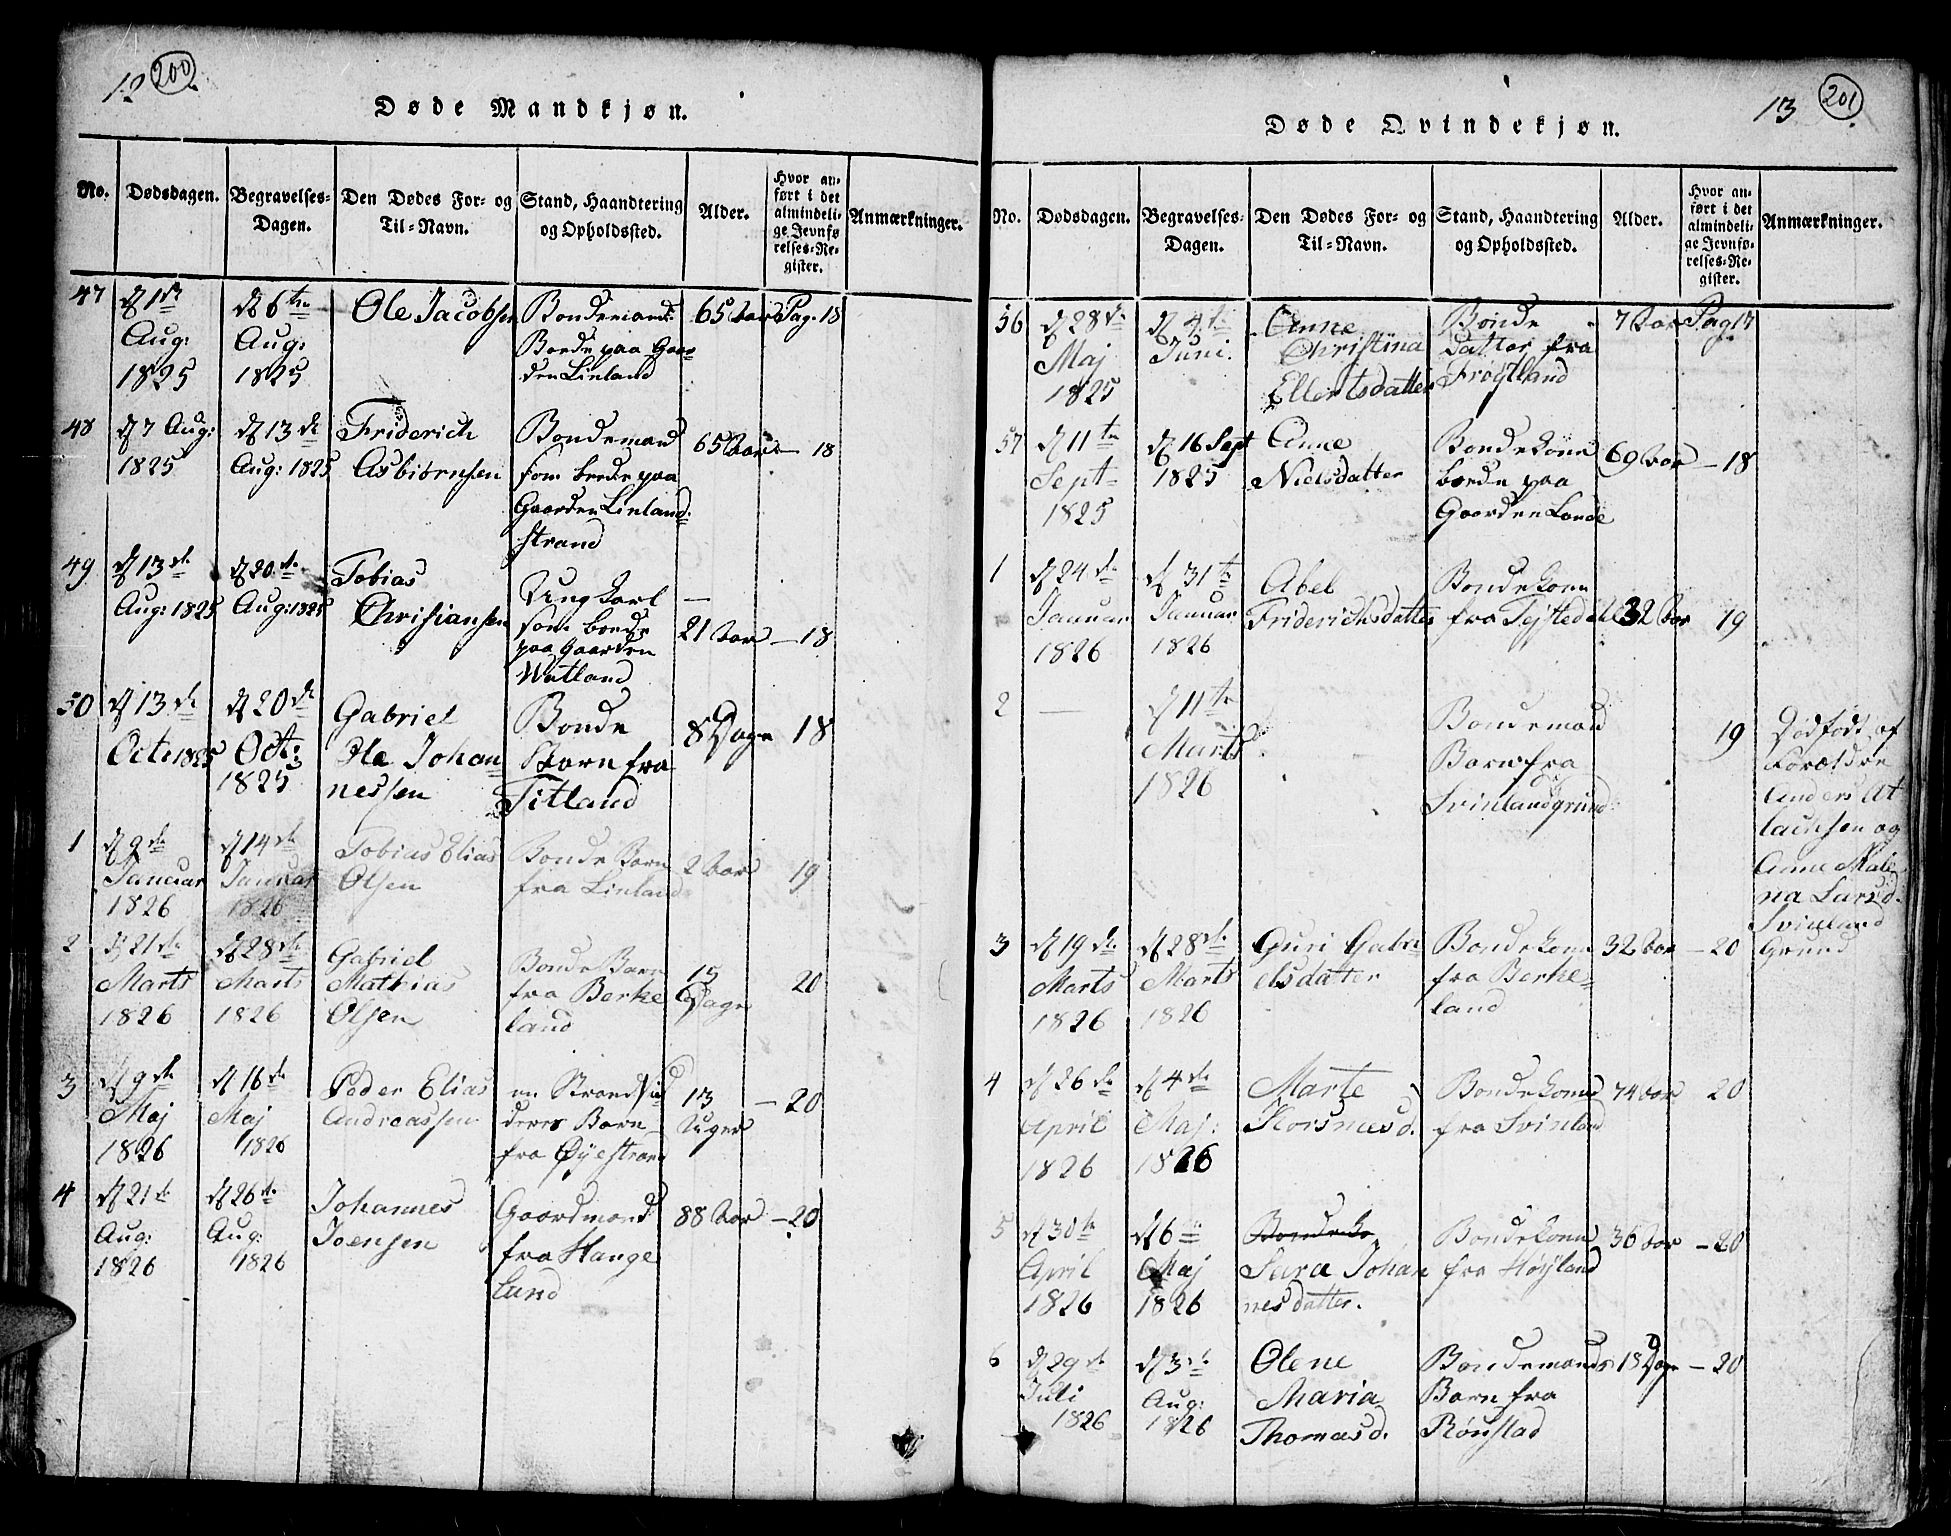 12 200
Døde Mandkjøn.
No. Dødsdagen. Begravelses-Dagen. Den Dødes For- og Til-Navn. Stand, Haandtering og Opholdssted. Alder. Hvor anført i det almindelige Jevnførelses-Register. Anmærkninger.
47 d 1ste Aug: 1825 d 6te Aug: 1825 Ole Jacobsen Bondemand Boede paa Gaarden Linland 65 Aar Pag. 18
48 d 7 Aug: 1825 d 13de Aug: 1825 Friderich Asbiørnsen Bondemand som boede paa Gaarden Linlandstrand 65 Aar — 18
49 d 13de Aug: 1825 d 20de Aug: 1825 Tobias Chrisiansen Ungkarl som boede paa Gaarden Watland 21 Aar — 18
50 d 13de Octr 1825 d 20de Oct: 1825 Gabriel Johannessen Bonde Barn fra Titland 8 Dage 18
1 d 9de Januar 1826 d 14de Januar 1826 Tobias Elias Olsen Bonde Barn fra Linland 2 Aar 19
2 d 21de Marts 1826 d 28de Marts 1826 Gabriel Mathias Olsen Bonde Barn fra Berkeland 15 Dage 20
3 d 9de Maj 1826 d 16de Maj 1826 Peder Elias Andreassen en Strandsidders Barn fra Øyestrand 13 Uger — 20
4 d 21de Aug: 1826 d 26de Aug: 1826 Johannes Joensen Gaardmand fra Hangeland 88 Aar — 20
13 201
Døde Qvindekjøn.
No. Dødsdagen. Begravelses-Dagen. Den Dødes For- og Til-Navn. Stand, Haandtering og Opholdssted. Alder. Hvor anført i det almindelige Jevnførelses-Register. Anmærkninger.
56 d 28de Maj 1825 d 4de Juni. Anne Christina Ellertsdatter Bonde Datter fra Frøytland 7 Aar Pag 17
57 d 11te Sept 1825 d 16 Sept 1825 Anne Nielsdatter Bondekone boede paa Gaarden Lande 69 Aar — 18
1 d 24de Januar 1826 d 31te Januar 1826 Abel Friderichsdatter Bondekone fra Tejstedal 32 Aar 19
2 — d 11te Marts 1826 Bondemand Barn fra Svinlandgrund 19 Dødfødt af Forældre Anders Atlacksen og Anne Malena Larsd. Svinland Grund
3 d 19de Marts 1826 d 28de Marts 1826 Guri Gabrielsdatter Bondekone fra Berkeland 32 Aar — 20
4 d 26de April 1826 d 4de Maj: 1826 Marte Bondekone fra Svinland 74 Aar 20
5 d 30te April 1826 d 6te Maj 1826 Sara Johannesdatter. Bondekone fra Høyland 36 Aar — 20
6 d 29de Juli 1826 d 3de Aug: 1826 Olene Maria Thomasd. Bondemands Barn fra Rønstad 18 Dage — 20